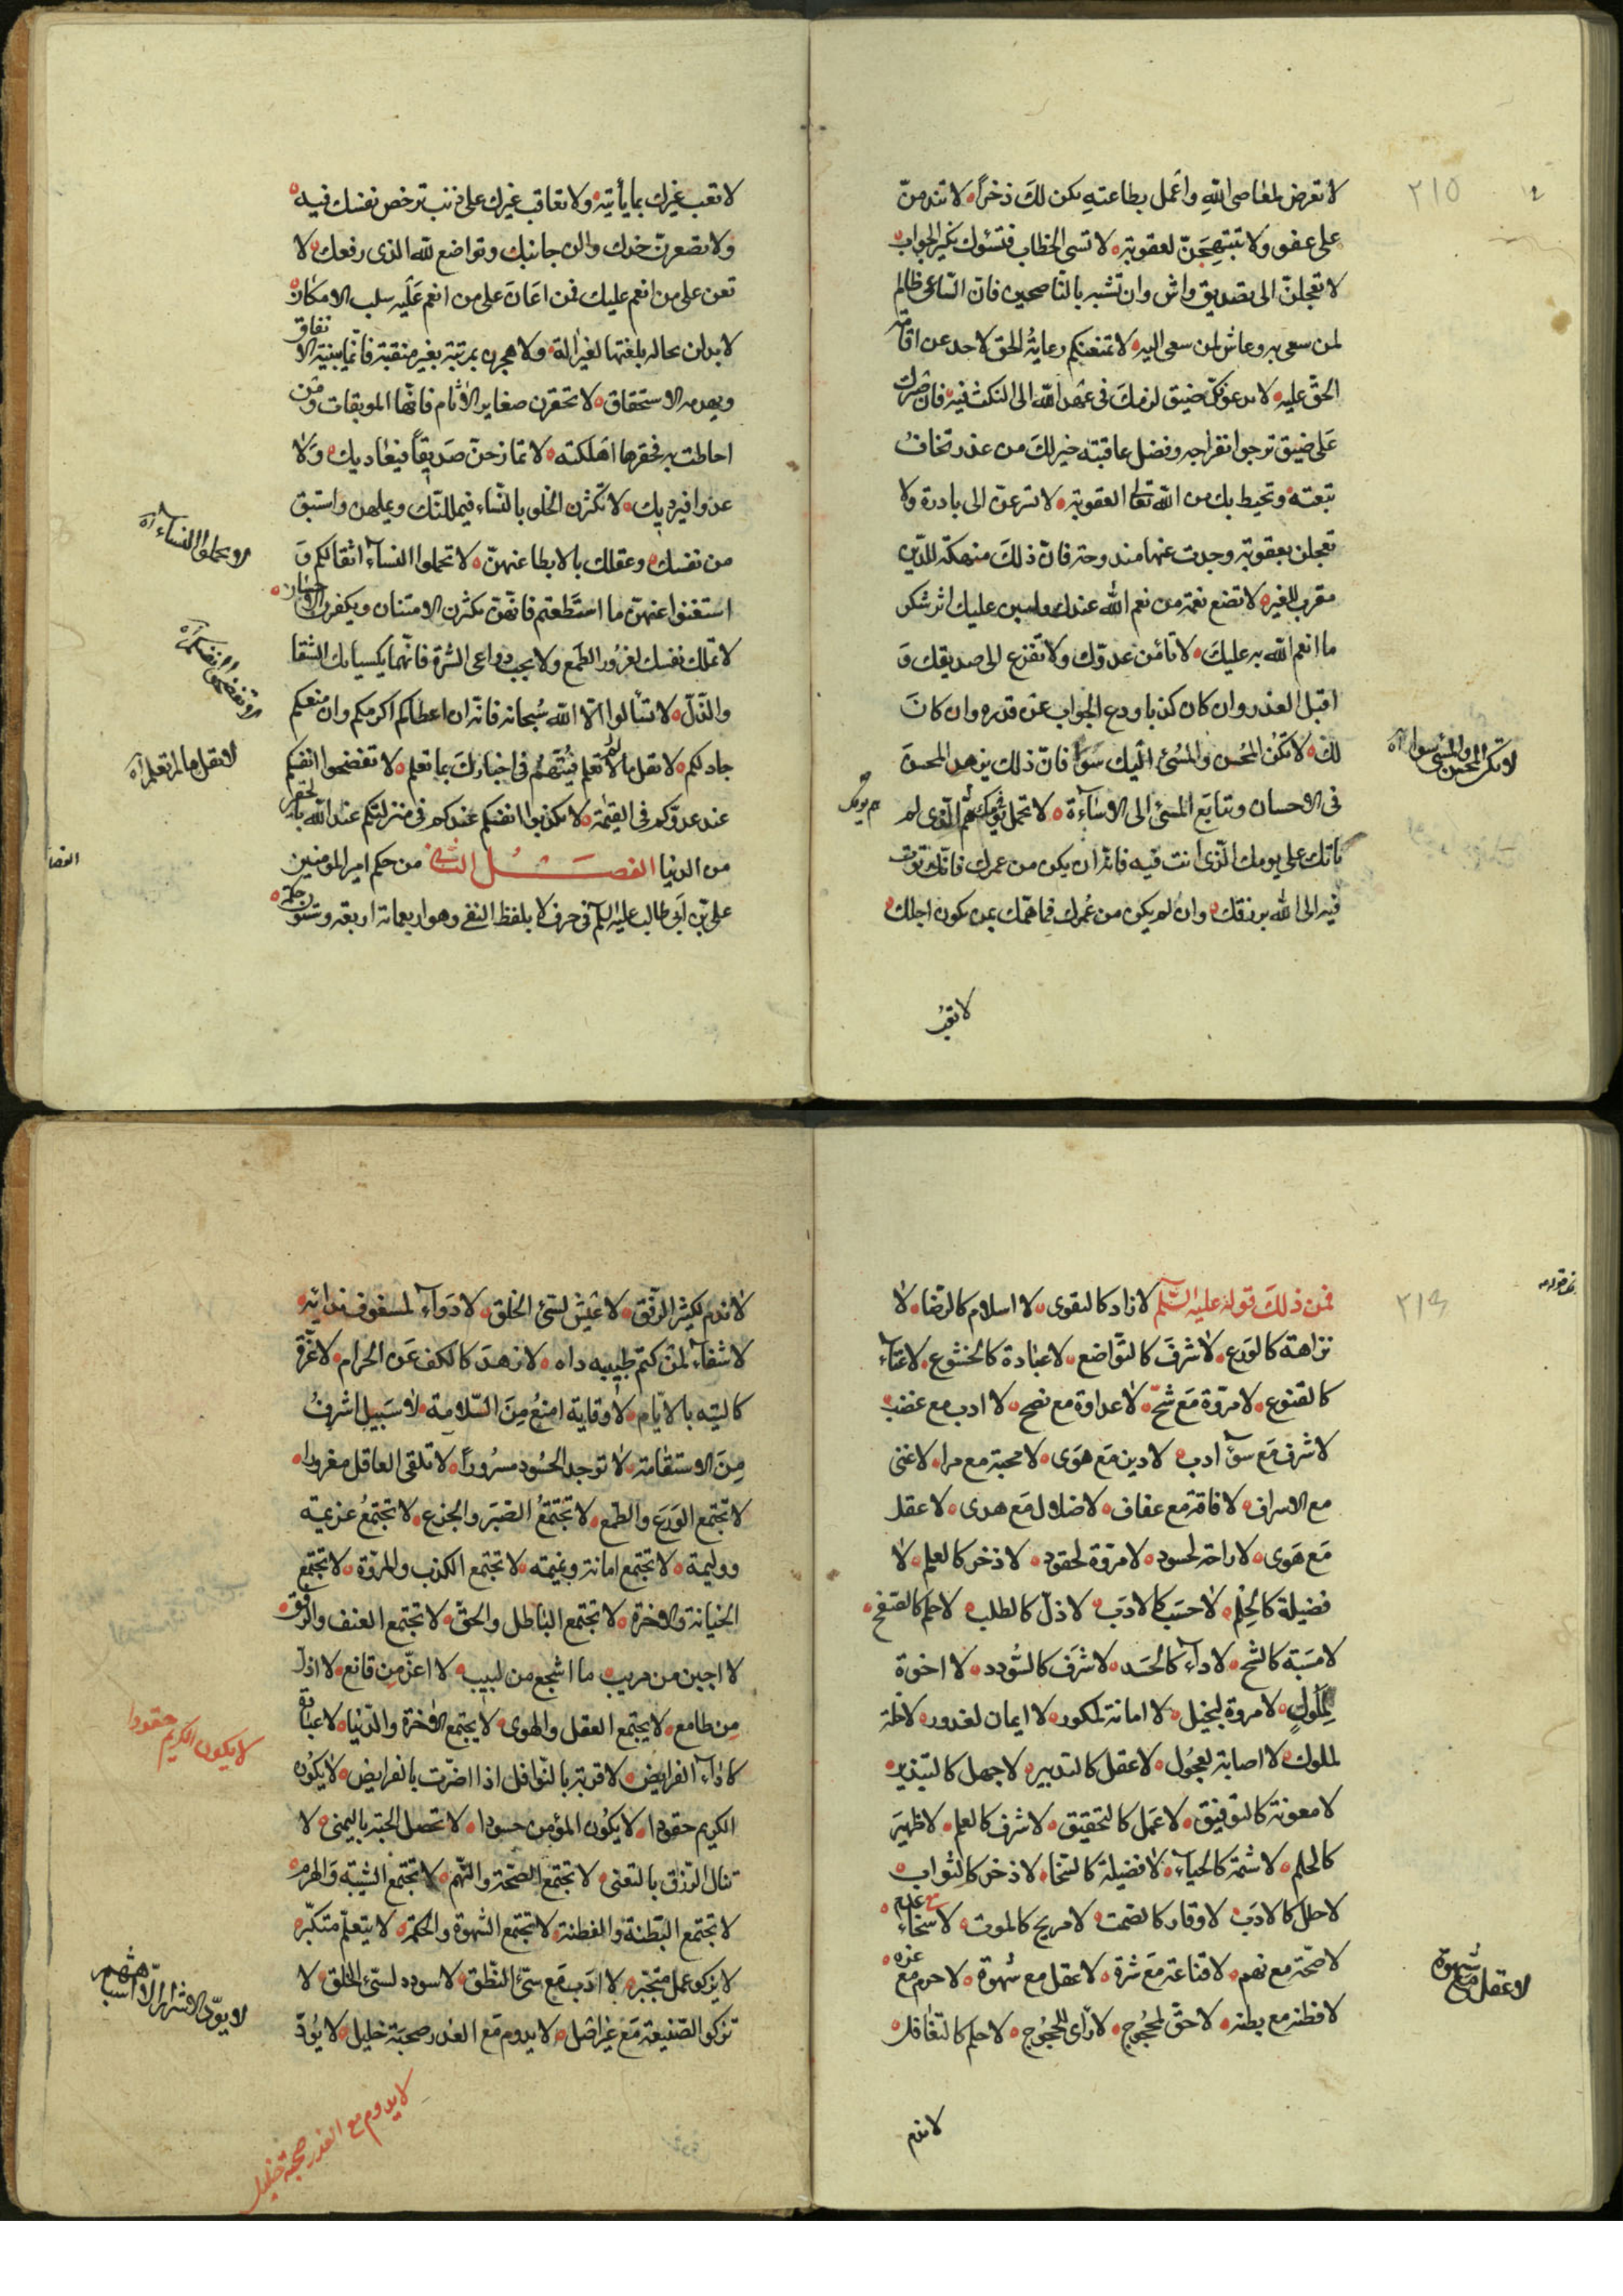 ٢١٥
لا تعرض لمعاصى اللّه واعمل بطاعته يكن لك ذخراً لا تندمنّ
على عفو ولا تبتهجنّ لعقوبة لا تسئ الخطاب فتسؤك نكير الجواب
لا تعجلنّ الى تصديق واش وان تشبه بالناصحين فان الساعى ظالم
لمن سعى به وغاش لمن سعى اليه لا تمنعنكم رعاية الحق لاحد عن اقامة
الحقّ عليه لا يدعونّك ضيق لزمك فى عهد اللّه الى النكث فيه فان صبرك
على ضيق ترجوا انفراجه وفضل عاقبته خير لك من عذر تخاف
تبعته وتحيط بك من اللّه تعالى العقوبة لا تسرعنّ الى بادرة ولا
تعجلن بعقوبة وجدت عنها مندوحة فانّ ذلك منهكة للدّين
مقرب للغير لا تضع نعمة من نعم اللّه عندك وليبن عليك اثر شكر
ما انعم اللّه به عليك لا تأمن عدوّك ولا تفزع الى صديقك و
اقبل العذر وان كان كذبا ودع الجواب عن قدره وان كان
لك لا يكن المحسن والمسئ اليك سوآء فانّ ذلك يزهد المحسن
فى الاحسان وتتابع المسئ الى الاسآءة لا تحمل همّ يومك الّذى لم
ياتك على يومك الّذى انت فيه فانه ان يكن من عمرك فانك تؤت
فيه الى اللّه برزقك وان لم يكن من عمرك فما همّك بمن يكون اجلك
لا تعب
لا تكن المحسن والمسئ سوآء آه
همّ يومك
لا تعب غيرك بما يأتيه ولا تعاقب غيرك على ذنب ترخص نفسك فيه
ولا تصعرنّ خدك والن جانبك وتواضع للّه الذى رفعك لا
تعن على من انعم عليك فمن اعان على من انعم عليه سلب الامكان
لا يدلن بحالة بلغتها لغير الة ولا تفخرن بمرتبة بغير منقبة فانما يبنيه الاتفاق
ويهدمه الاستحقاق لا تحقرن صغاير الاثام فانّها الموبقات ومن
احاطت به محقرها اهلكته لا تمازحنّ صديقاً فيعاديك ولا
عدوا فيرديك لا تكثرن الخلو بالنّساء فيمللنّك وتملهن واستبق
من نفسك وعقلك بالابطا عنهنّ لا تحملوا النسآء اثقالكم و
استغنوا عنهنّ ما استطعتم فانهنّ يكثرن الامتنان ويكفرن الاحسان
لا تملك نفسك لغرور الطمع ولا يجب دواعى الشره فانهما يكسبانك الشقا
والذّلّ لا تسألوا الّا اللّه سبحانه فانه ان اعطاكم اكرمكم وان منعكم
جاد لكم لا تقل ما لا تعلم فتتّهم فى اخبارك بما تعلم لا تفضحوا انفسكم
عند عدوّكم فى القيمة لا تكذبوا انفسكم عندكم فى منزلتكم عند اللّه بالحقير
من الدنيا الفصل الثانى من حكم امير المؤمنين
على بن ابى طالب عليه السلم فى حرف لا بلفظ النفى وهو اربعمائة اربعة وستون حكمة
لا تحملوا النسآء آه
لا تفضحوا انفسكم آه
لا تقل ما لا تعلم آه
٢١٦
فمن ذلك قوله عليه السّلم لا زاد كالتقوى لا اسلام كالرضا لا
نزاهة كالورع لا شرف كالتّواضع لا عبادة كالخشوع لا غناء
كالقنوع لا مروّة مع شحّ لا عداوة مع نصح لا ادب مع غضب
لا شرف مع سوء ادب لا دين مع هوى لا محبة مع مرا لا غنى
مع الاسراف لا فاقة مع عفاف لا ضلال مع هدى لا عقل
مع هوى لا راحة لحسود لا مروة لحقود لا ذخر كالعلم لا
فضيلة كالحلم لا حسب كالادب لا ذلّ كالطلب لا حلم كالصّفح
لا مسبة كالشح لا دآء كالحسد لا شرف كالسّودد لا اخوة
لملول لا مروة لبخيل لا امانة لمكور لا ايمان لغدور لا خلة
لملوك لا اصابة لعجول لا عقل كالتدبير لا جهل كالتبذير
لا معونة كالتوفيق لا عمل كالتحقيق لا شرف كالعلم لا ظهير
كالحلم لا شيمة كالحياء لا فضيلة كالسخا لا ذخر كالثواب
لا حلل كالادب لا وقار كالصمت لا مريح كالموت لا سخاء مع عدم
لا صحّة مع نهم لا قناعة مع شره لا عقل مع شهوة لا حزم مع غره
لا فطنة مع بطنة لا حقّ لمحجوج لا رأى للجوج لا حلم كالتغافل
لا ندم
لا عقل مع شهوة
لا ندم لكثير الرّفق لا عيش لسئ الخلق لا دوآء لمسغوف بدائه
لا شفآء لمن كتم طبيبه داه لا زهد كالكف عن الحرام لا غرّة
كالثقة بالايّام لا وقاية امنع من السّلامة لا سبيل اشرف
من الاستقامة لا توجد الحسود مسروراً لا تلقى العاقل مغرورا
لا تجتمع الورع والطمع لا تجتمع الصّبر والجزع لا تجتمع عزيمة
ووليمة لا تجتمع امانة ونميمة لا تجتمع الكذب والمروّة لا تجتمع
الخيانة والاخوة لا تجتمع الباطل والحقّ لا تجتمع العنف والرفق
لا اجبن من مريب ما اشجع من لبيب لا اعزّ من قانع لا اذل
من طامع لا يجتمع العقل والهوى لا يجتمع الاخرة والدّنيا لا عبادة
كادآء الفرايض لا قربة بالنّوافل اذا اضرّت بالفرايض لا يكون
الكريم حقودا لا يكون المؤمن حسودا لا تحصل الجنة باليمنى لا
تنال الرّزق بالتعنى لا تجتمع الصحّة والنّهم لا تجتمع الشيبة والهرم
لا تجتمع البّطنة والفطنة لا تجتمع الشهوة والحكمة لا يتعلّم متكبّر
لا يزكو عمل متجبّر لا ادب مع سئ النطق لا سودد لسئ الخلق لا
تزكو الصّنيعة مع غير اصل لا يدوم مع الغدر صحبة خليل لا يودّ
لا يكون الكريم حقودا
لا يودّ الاشرار الّا اشباههم
لا يدوم مع الغدر صحبة خليل